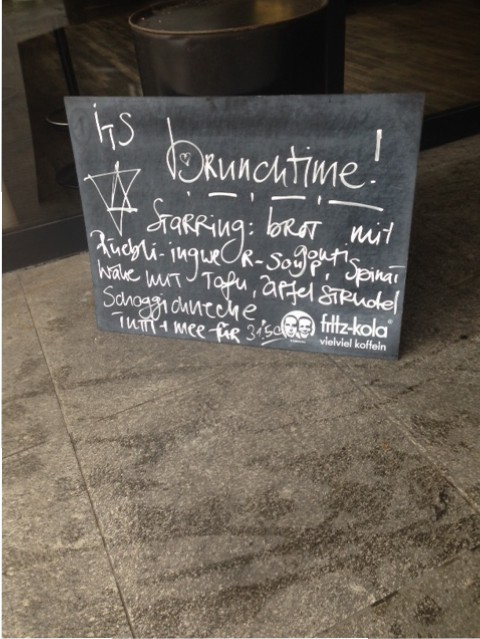 its
brunchtime!
Starring: brot mit
Rüebli-ingwer-Soup, Spinat
Wähe mit Tofu, apfel Strudel
Schoggichueche
Tutti + mee für 31.50
fritz-kola
vielviel koffein